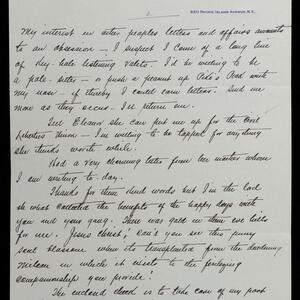 2
My interest in other peoples letters and affairs amounts
to an obsession — I suspect I come of a long line
of key-hole listening valets. I'd be willing to be
a pole-sitter — or push a peanut up Pike's Peak with
my nose — if thereby I could earn letters. Send me
more as they occur — I'll return em.
Tell Eleanor she can put me up for the Civil
Liberties Union — I'm willing to be tapped for anything
she thinks worth while.
Had a very charming letter from her whom
I am writing to-day.
Thanks for them kind words but I'm the lad
what collected the benefits of the happy days with
you and your gang. There was gold in them ere hills
for me. Jesus Christ! Can't you see this puny
soul blossom when its transplanted from the
in which it exists to the
companionship you provide!
The enclosed check is to take care of my part